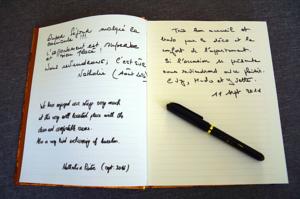 Super séjour malgré la
L'appartement est superbe
et bien placé !
Nous reviendrons, c'est sûr
Nathalie (Août 2016)
We have enjoyed our stay very much
at this very well located place with the
clean and comfortable rooms.
Also a very kind welcoming of
Nathalie (sept. 2016)
Très bon accueil et
par le déco et le
confort de l'appartement.
Si l'occasion se présente
nous reviendrons avec plaisir.
11 sept 2016